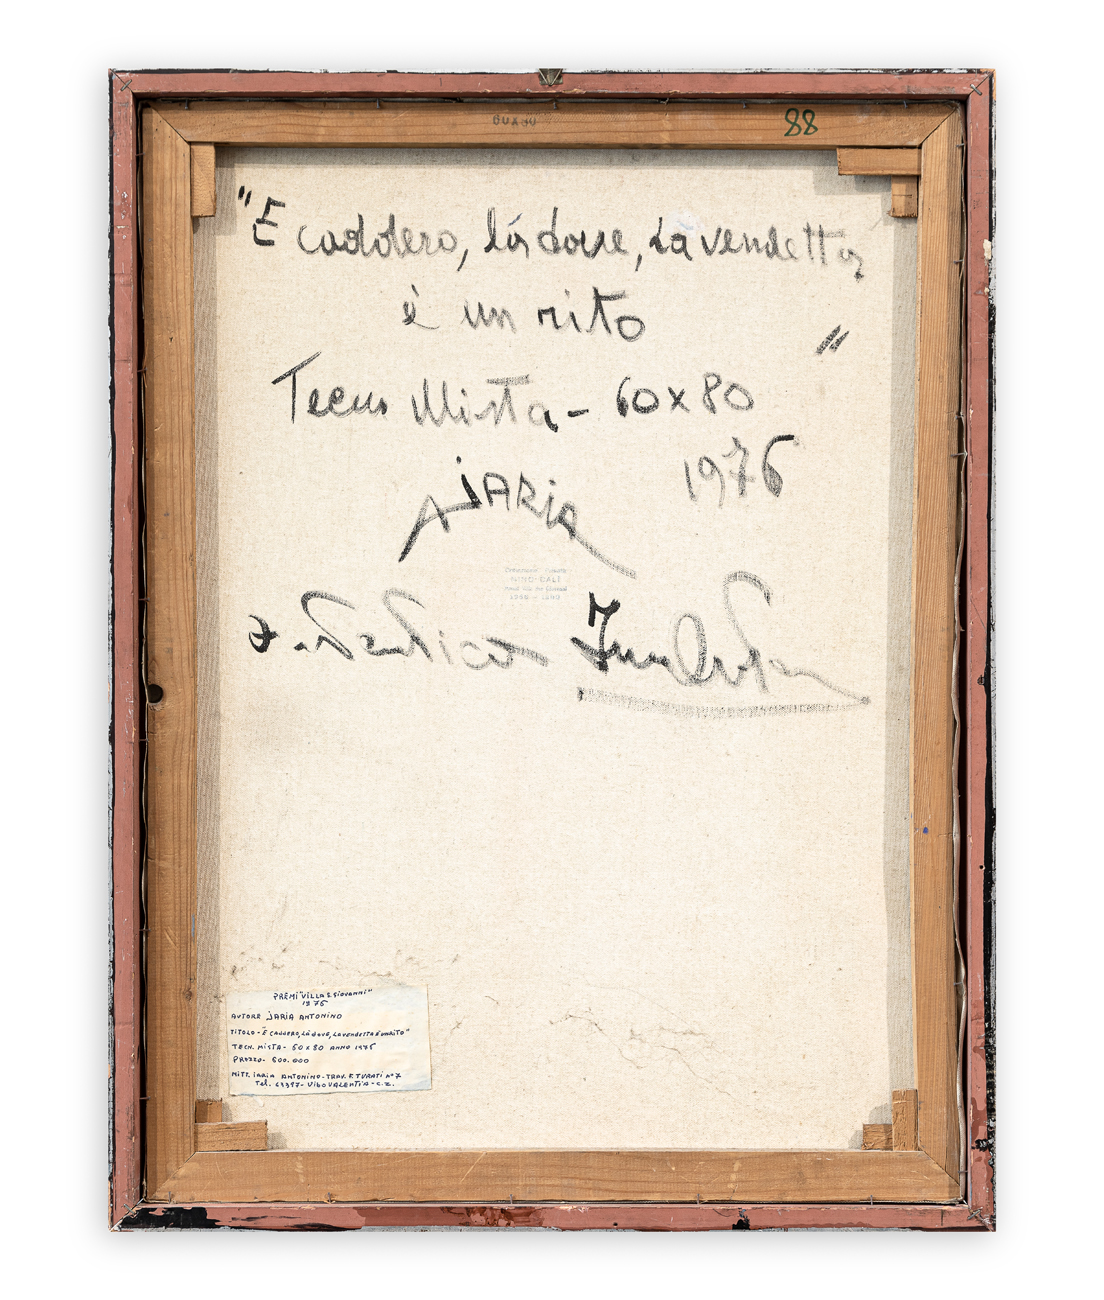 88
"E caddero, là dove, la vendetta
è un rito
"
Tecn Mista - 60x80
1976
A JARIA
NINO CALÌ
PREMI "VILLA S. GIOVANNI"
1976
AUTORE JARIA ANTONINO
TITOLO - "E CADDERO, LÀ dOVE, LA VENDETTA È UN RITO"
TECN. MISTA - 60 x 80 ANNO 1976
PREZZO - 600.000
MITT. IARIA ANTONINO - TRAV. F. TURATI N° 7
Tel. 43397 - VIBO VALENTIA - C.Z.